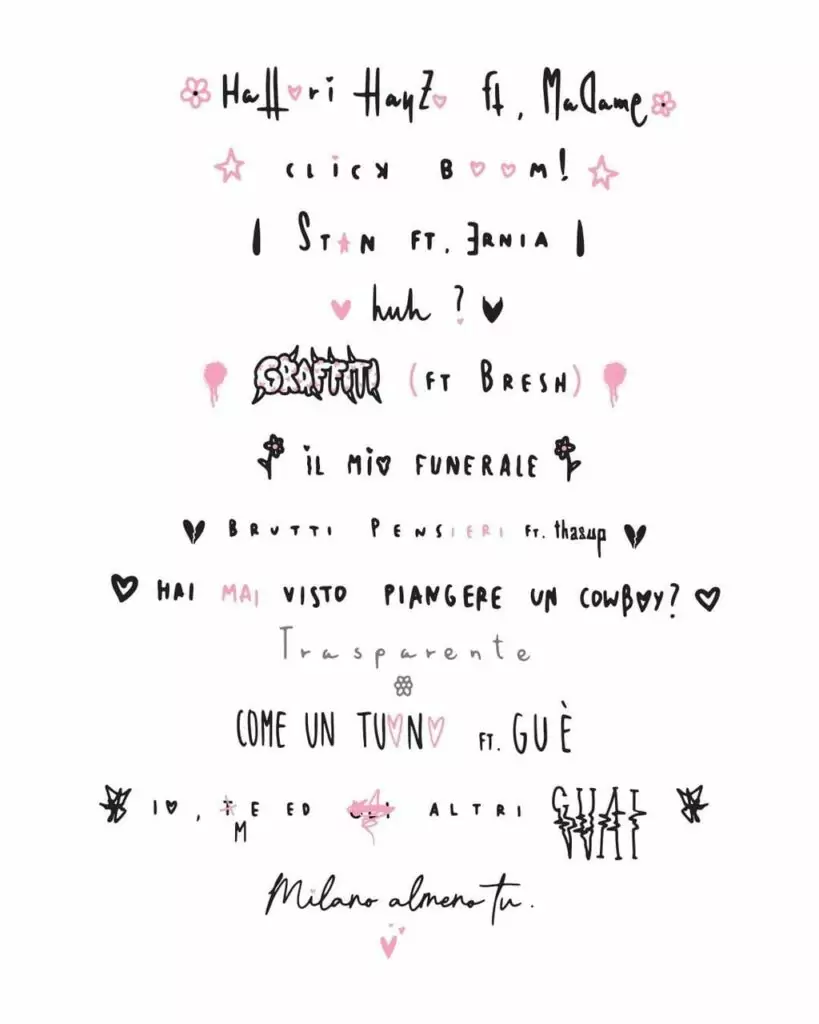 Hattori Hanzo ft. Madame
CLICK BOOM!
STAN FT. ERNIA
huh?
GRAFFITI (FT BRESH)
IL MIO FUNERALE
BRUTTI PENSIERI FT. thasup
HAI MAI VISTO PIANGERE UN COWBOY?
Trasparente
COME UN TUONO FT. GUÈ
IO, TE ED GLI ALTRI GUAI
M
Milano almeno tu.